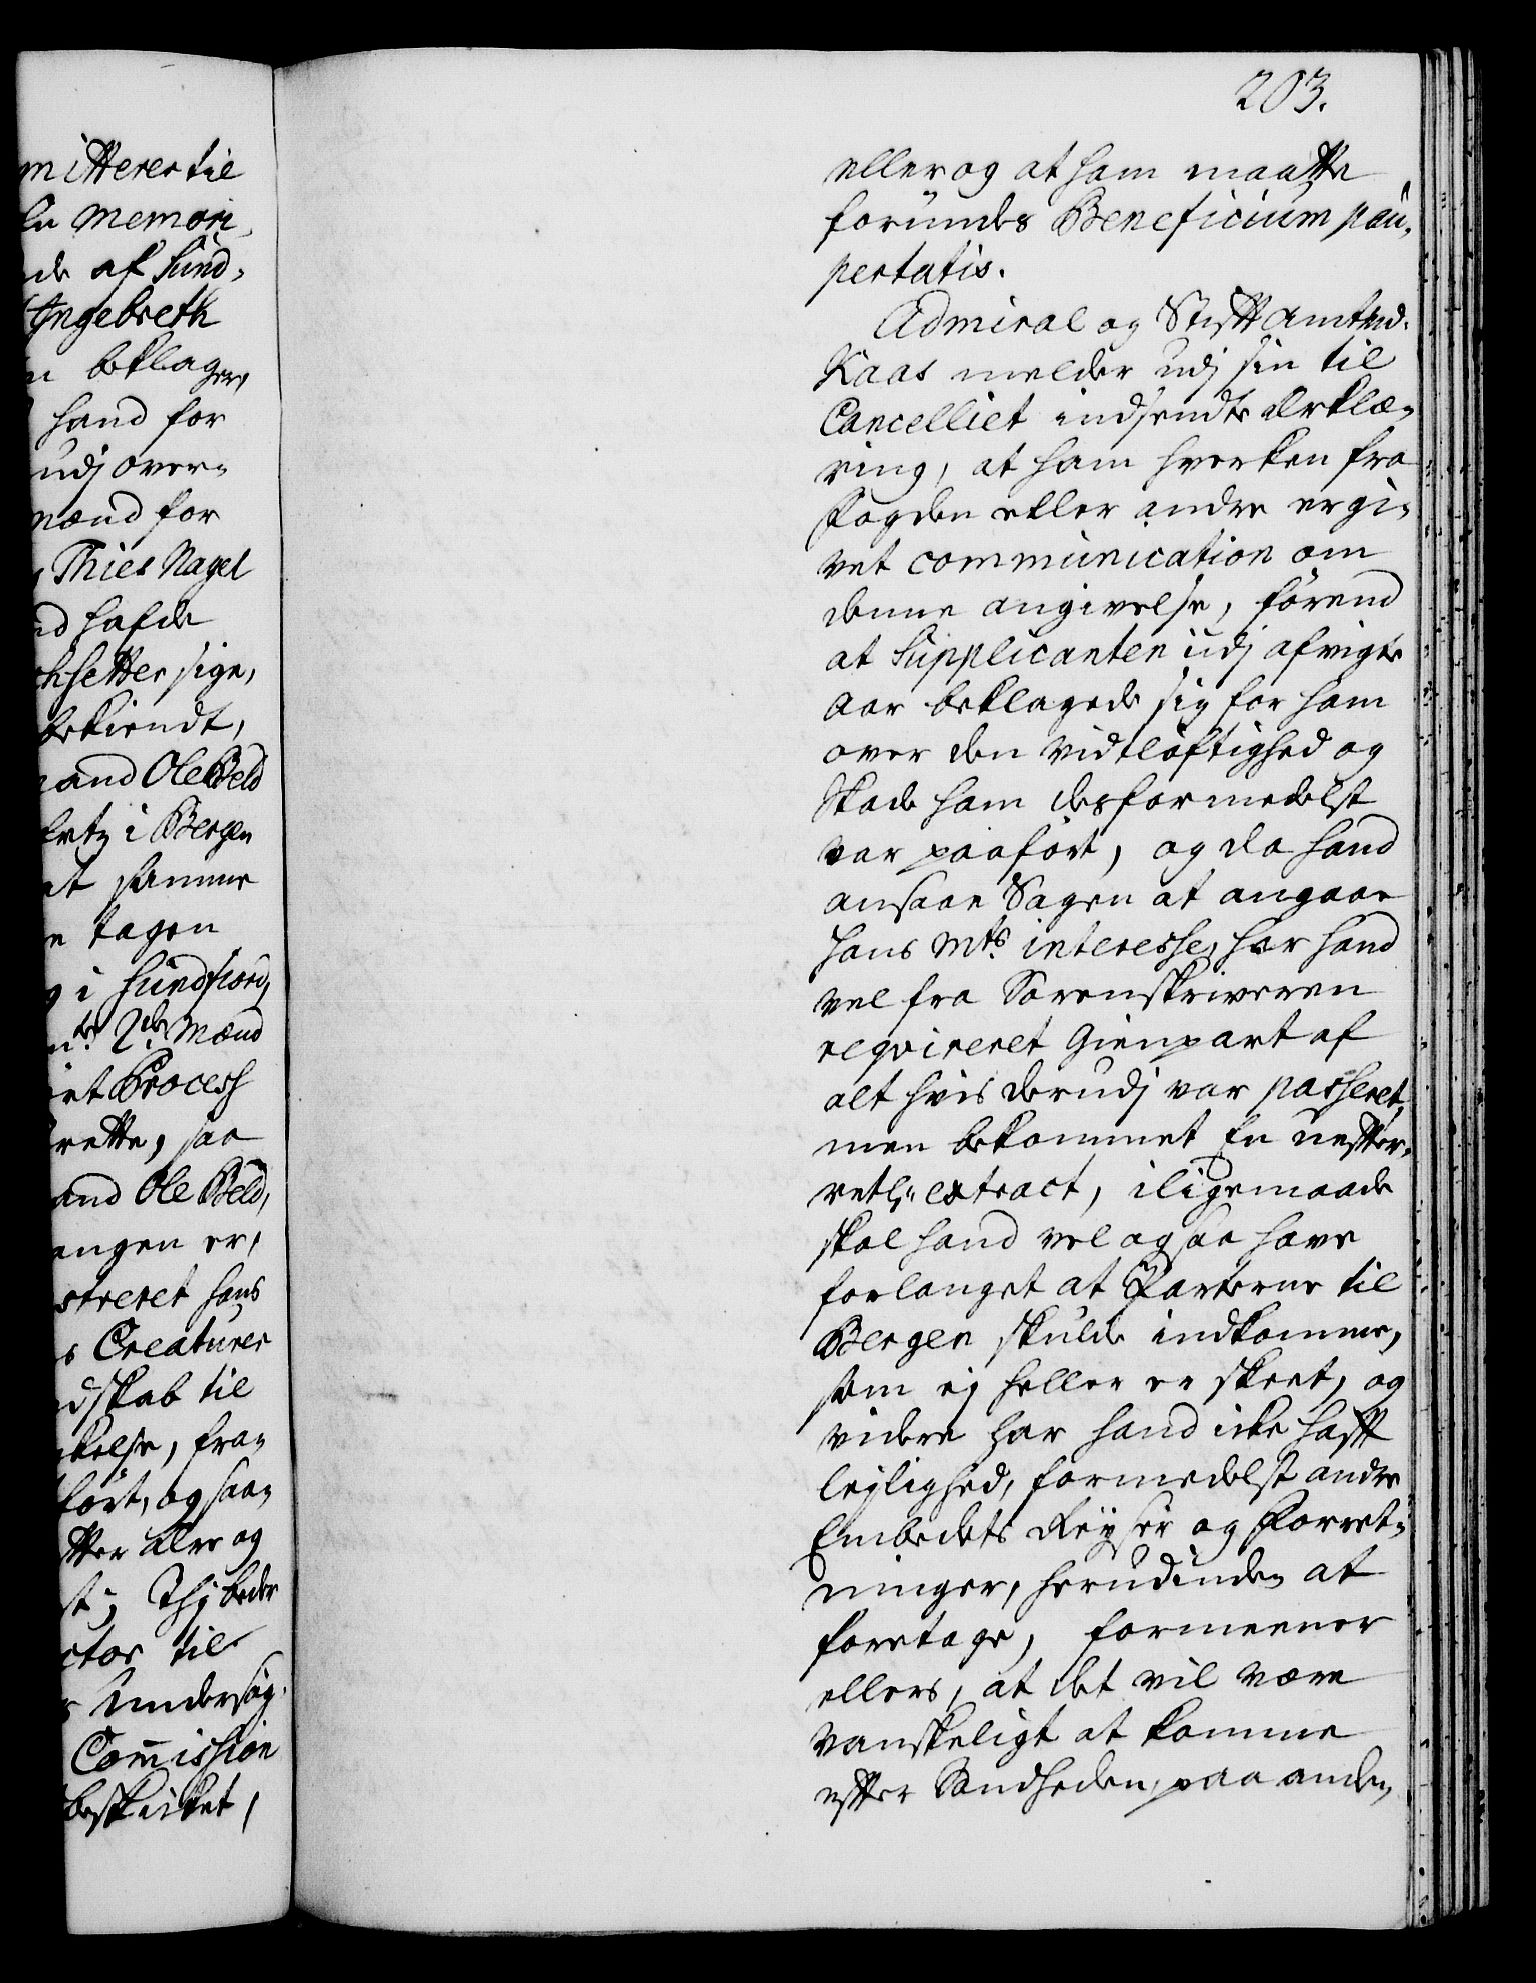 mitterer til
le Memori,
de af Sund,
Ingebreth
n beklager,
hand for
udj over,
mænd for
Thies Nagel
nd hafde
chsetter sige,
bekiendt,
and Ole Beld
i Bergen
at samme
e tagen
i Sundfiord,
2de Mænd
et Process
rette, saa
and Ole Beld,
angen er,
streret hans
s Creaturer
dskab til
kelse, fra,
ført, og saa,
og
st; Thj beder
ctor til
s undersøg,
Commission
beskicket,
203.
eller og at ham maatte
forundes Beneficium pau,
pertatis.
Admiral og Stift Amtmd.
Kaas melder udj sin til
Cancelliet indsendte Erklæ,
ring, at ham hverken fra
Fogden eller andre er gi,
vet communication om
denne angivelse, førend
at Supplicanten udj afvigte
Aar beklagede sig for ham
over den vidtløftighed og
Skade ham desformedelst
var paaført, og da hand
ansaae Sagen at angaae
hans Mts. interesse, har hand
vel fra Sorenskriveren
reqvireret Gienpart af
alt hvis derudj var passeret,
men bekommet En uefter,
retl: extract, iligemaade
skal hand vel og saa have
forlanget at Parterne til
Bergen skulde indkomme,
som ej heller er skeet, og
videre har hand icke hafft
lejlighed, formedelst andre
Embedets Reyser og Forret,
ninger, herudinden at
foretage, formeener
ellers, at det vil være
vanskeligt at komme
efter Sandheden, paa anden,